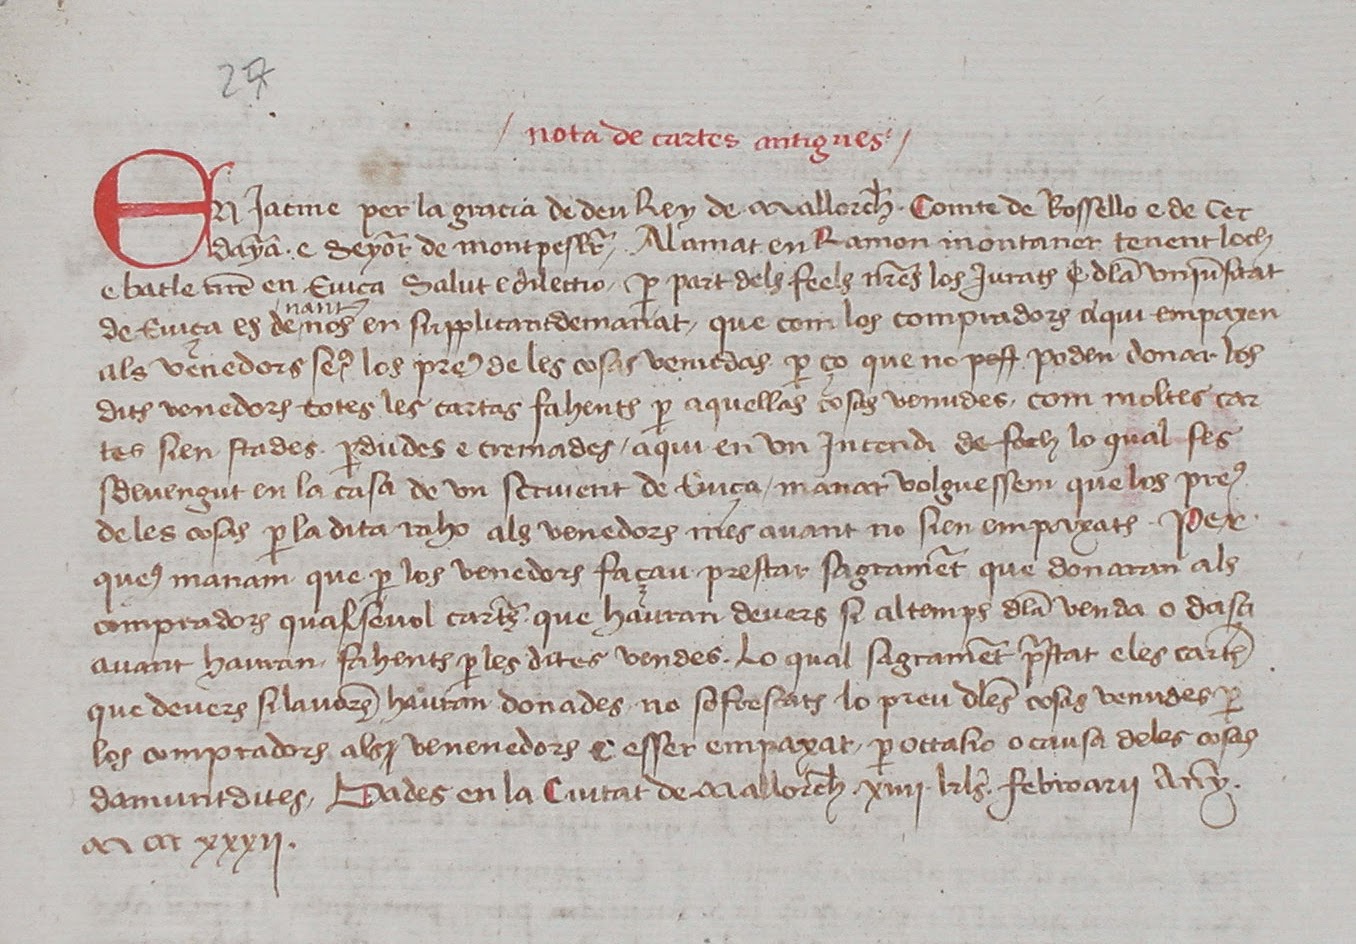 27
/ nota de cartes antigues /
En Jacme per la gracia de deu Rey de Mallorch. Comte de Rossello e de Cer
daya. e Seyor de montpesler, Al amat en Ramon montaner tenent loch
e batle nre en Eviça Salut e dilectio, per part dels feels nres los Jurats e dla vniusitat
nant
de Eviça es denos en supplicant demanat, que com los compradors aqui empaxen
als venedors los preus de les cosas venudas per ço que no poden donar los
dits venedors totes les cartas fahents per aquellas cosas venudes, com moltes car
tes sien stades perdudes e cremades, aqui en vn Incendi de foch lo qual ses
sdevengut en la casa de vn scrivent de Eviça, manar volguessem que los preus
de les cosas per la dita raho als venedors mes avant no sien empaxats. Per
que manam que per los venedors façau prestar sagrament que donaran als
compradors qualsevol cartes que hauran devers si al temps dla venda o dasi
avant hauran, fahents per les dites vendes. Lo qual sagrament prestat e les cartes
que devers si lavors hauran donades, no sofferats lo preu dles cosas venudes per
los compradors als venenedors esser empaxat, per occasio o causa de les cosas
damuntdites, Dades en la Ciutat de Mallorch. xiiii kls. febroarii Anny.
M CCC xxxii.